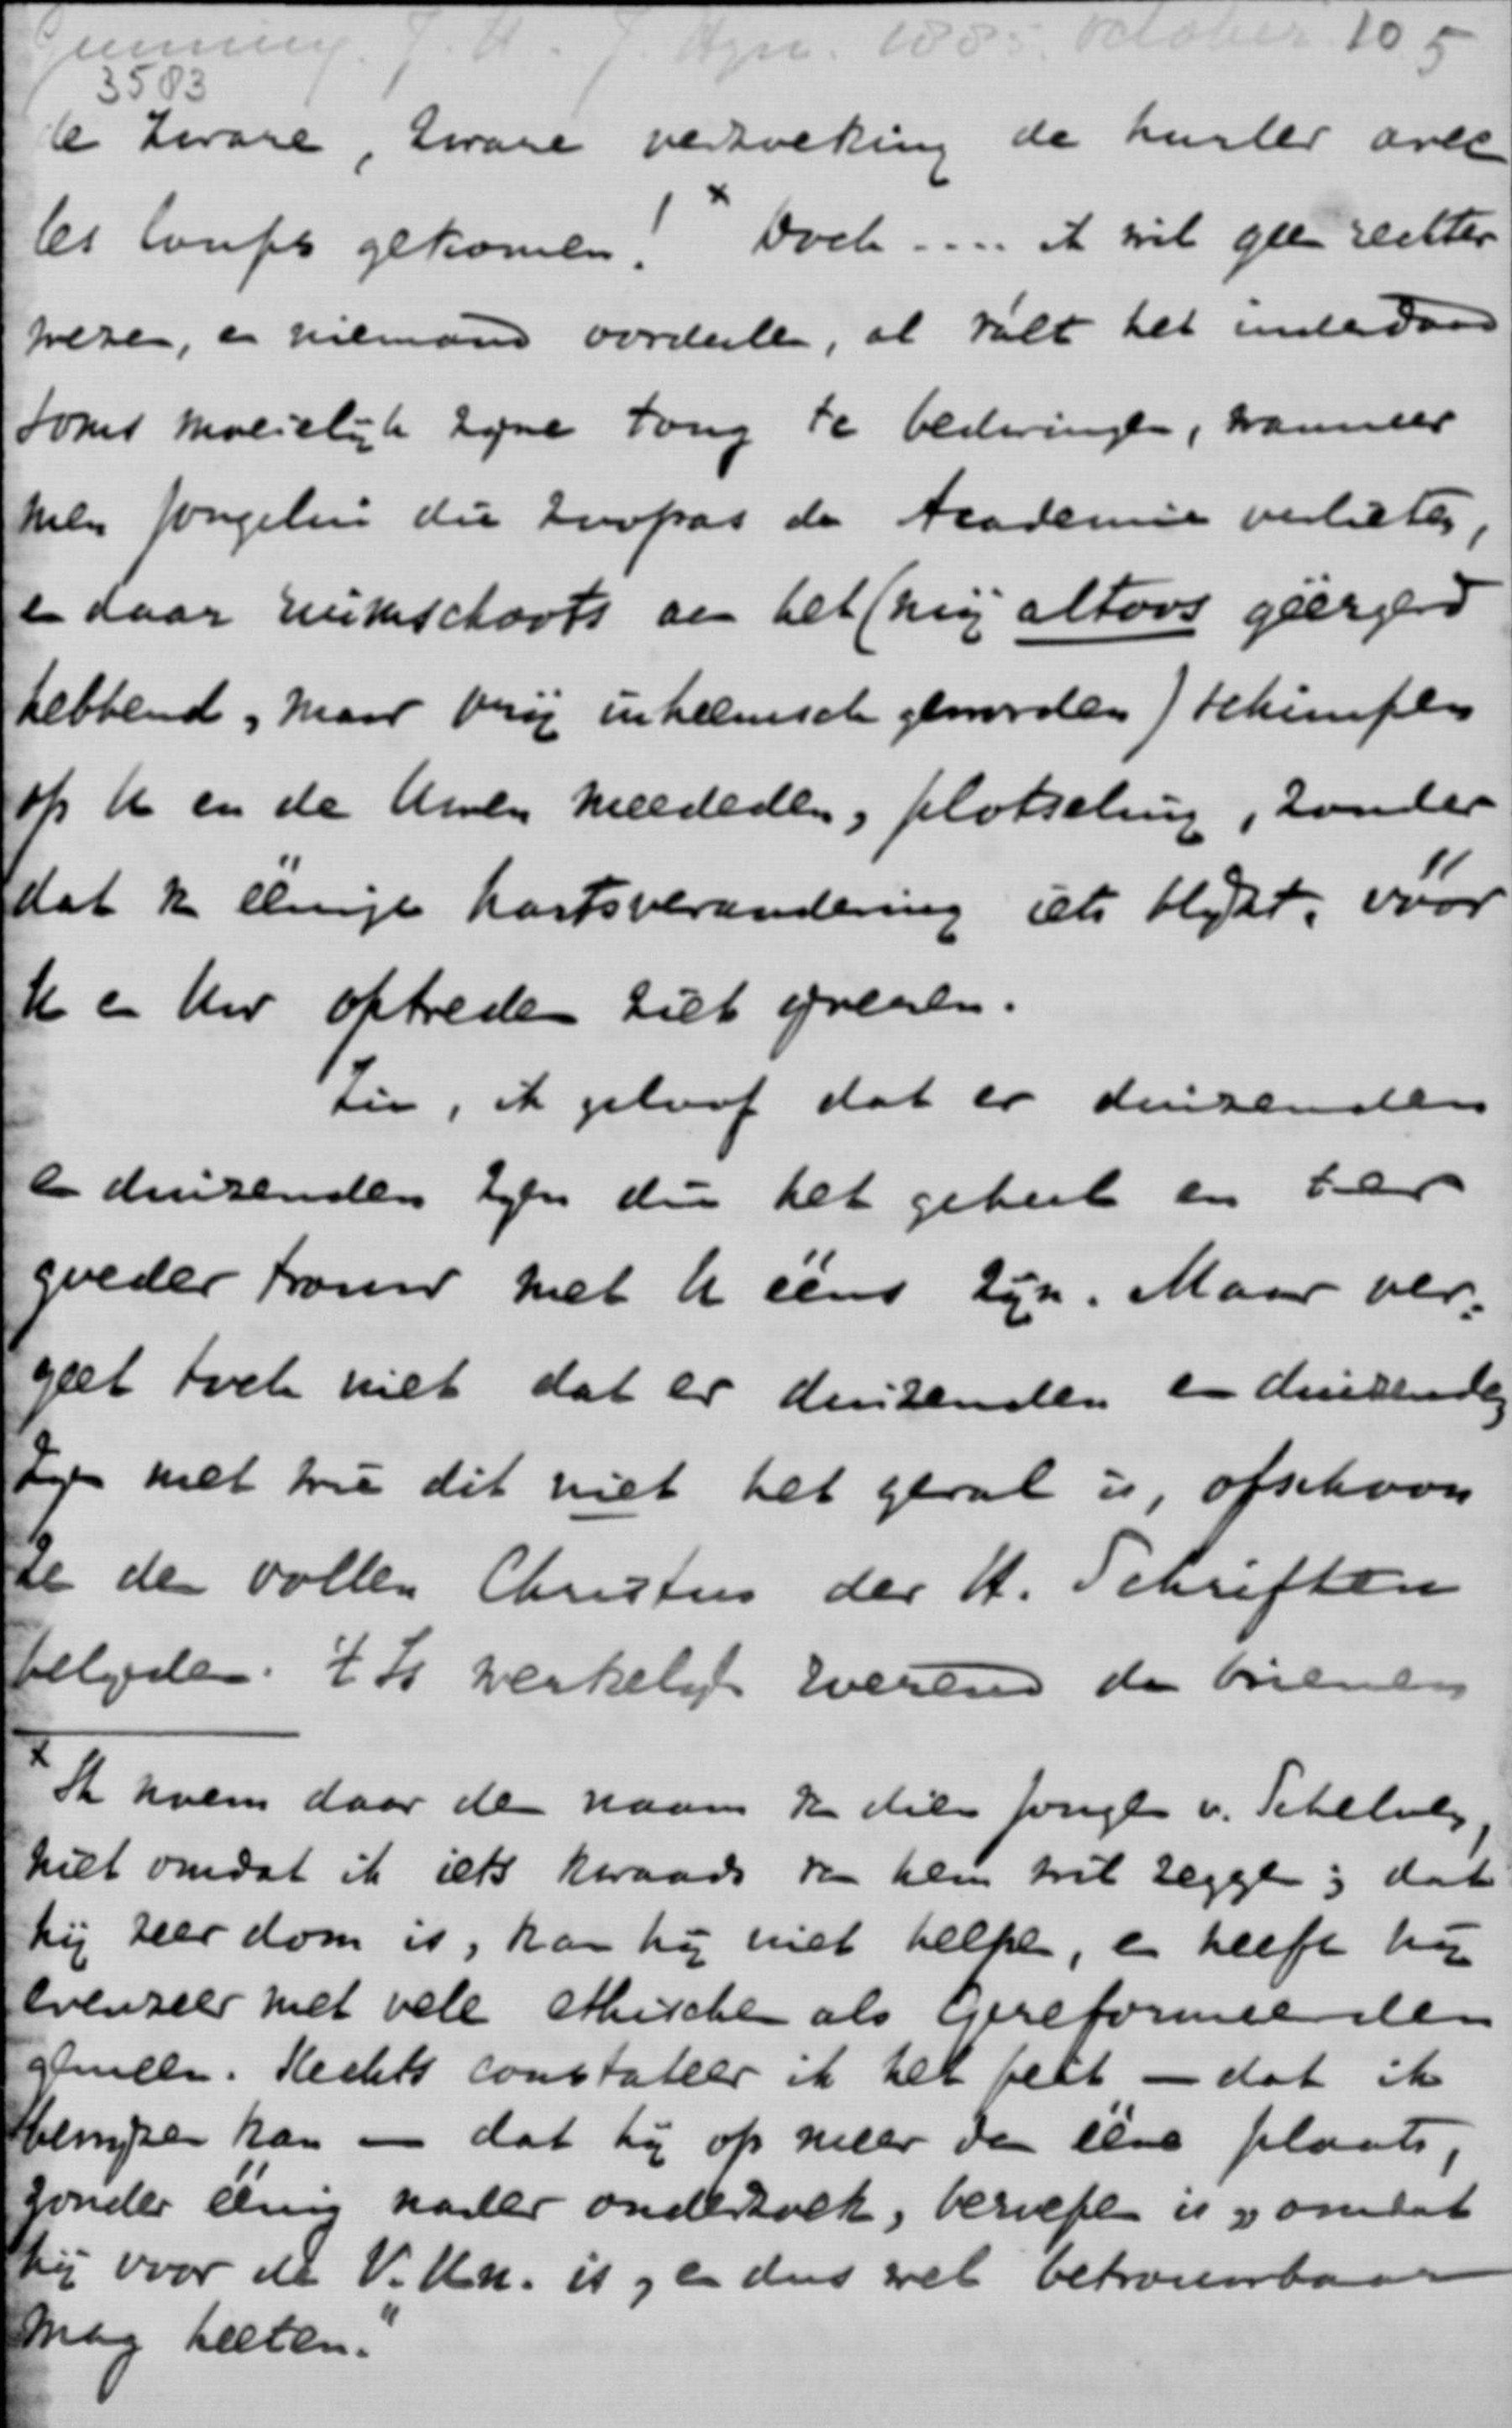 Gunning. J. H. J. Hzn. 1885. October 10 5
3583
de zware, zware verzoeking de hurler avec
les loups gekomen! x Doch .... ik wil geen rechter
wezen, en niemand oordeelen, al valt het inderdaad
soms moeielijk zijne tong te bedwingen, wanneer
men jongelui die zoopas de Academie verlieten,
en daar ruimschoots aan het (mij altoos geërgerd
hebbend, maar vrij inheemsch geworden) schimpen
op U en de Uwen meededen, plotseling, zonder
dat v. eenige hartsverandering iets blijkt, vóór
U en Uw optreden ziet ijveren.
Zie, ik geloof dat er duizenden
en duizenden zijn die het geheel en ter
goeder trouw met U ééns zijn. Maar ver-
geet toch niet dat er duizenden en duizenden
zijn met wie dit niet het geval is, ofschoon
ze den vollen Christus der H. Schriften
belijden. 't Is werkelijk zoozeer de
x Ik noem daar den naam v. dien jongen v. Schelven,
niet omdat ik iets kwaads van hem wil zeggen; dat
hij zeer dom is, kan hij niet helpen, en heeft hij
evenzeer met vele ethischen als Gereformeerden
gemeen. Slechts constateer ik het feit — dat ik
bewijzen kan — dat hij op meer dan ééne plaats,
zonder éénig nader onderzoek, beroepen is „omdat
hij voor de V. Un. is, en dus wel betrouwbaar
mag heeten."